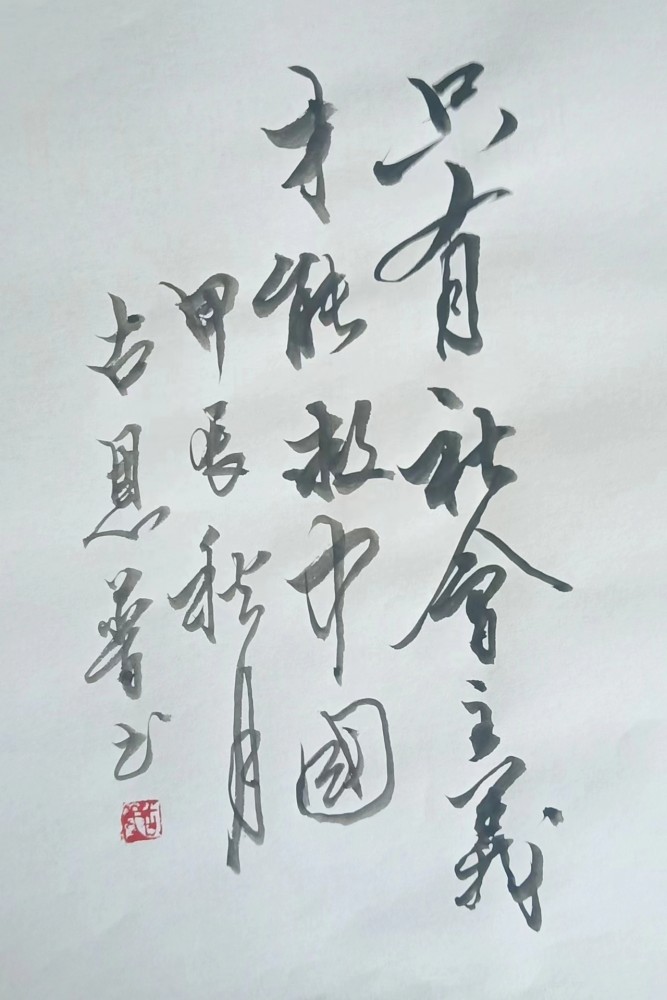 只有社會主義
才能救中國
甲辰秋月
古恩普书